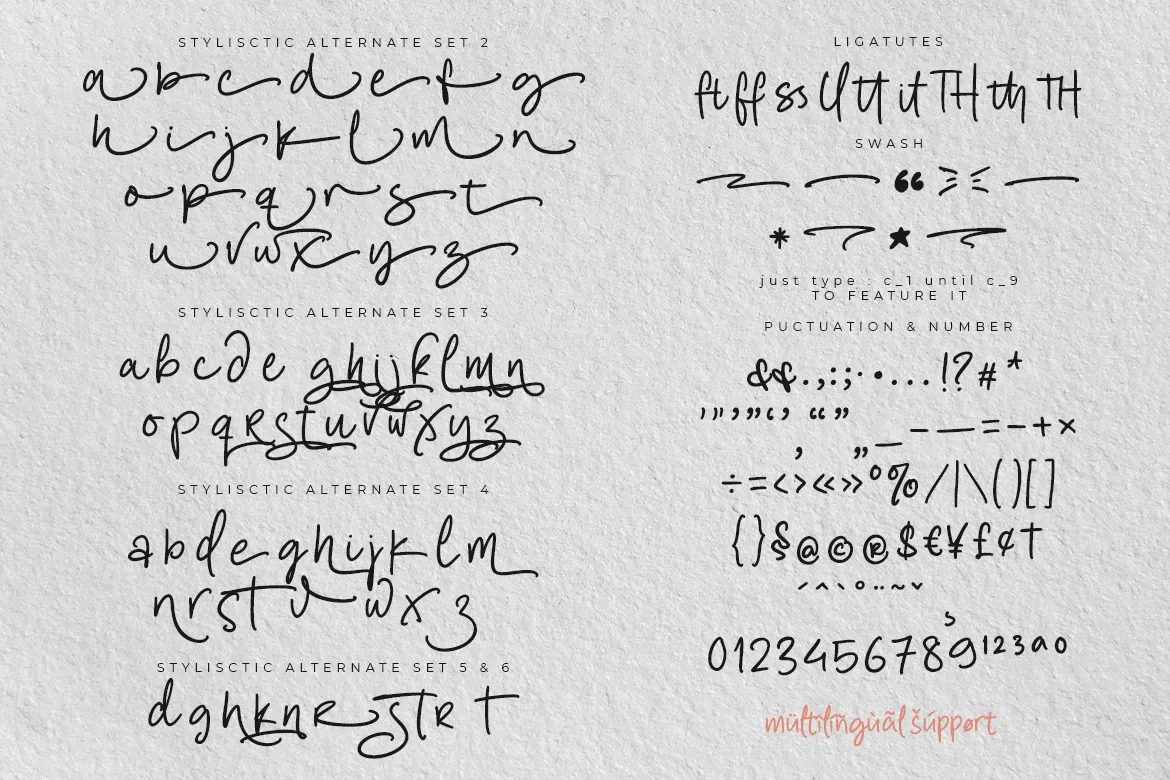 STYLISCTIC ALTERNATE SET 2
a b c d e f g
h i j k l m n
o p q r s t
u v w x y z
STYLISCTIC ALTERNATE SET 3
a b c d e g h i j k l m n
o p q R s t u v w x y z
STYLISCTIC ALTERNATE SET 4
a b d e g h i j k l m
n r s t v w x z
STYLISCTIC ALTERNATE SET 5 & 6
d g h k n R S T R t
LIGATUTES
ft ff ss ll tt it TH th TH
SWASH
just type : c_1 until c_9
TO FEATURE IT
PUCTUATION & NUMBER
&&.,:;·•...!?#*
'"’”‘’ “”
‚ „_–—=-+×
÷=<>«»°%/|\()[]
{}§@©®$€¥£¢†
´^`°¨~ˇ
0123456789¹²³ᵃ⁰
mültílîngùãl šúppørt